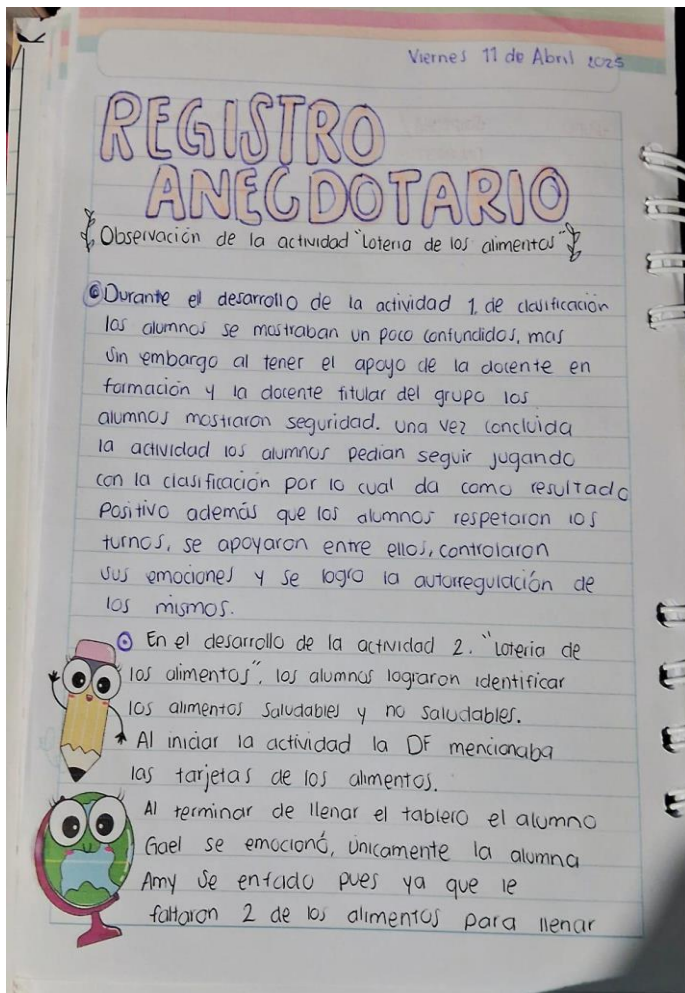 Viernes 11 de Abril 2025
REGISTRO
ANECDOTARIO
Observación de la actividad "Loteria de los alimentos"
Durante el desarrollo de la actividad 1, de clasificación
los alumnos se mostraban un poco confundidos, mas
sin embargo al tener el apoyo de la docente en
formación y la docente titular del grupo los
alumnos mostraron seguridad. una vez concluida
la actividad los alumnos pedian seguir jugando
con la clasificación por lo cual da como resultado
positivo además que los alumnos respetaron los
turnos, se apoyaron entre ellos, controlaron
sus emociones y se logro la autorregulación de
los mismos.
En el desarrollo de la actividad 2. "Loteria de
los alimentos", los alumnos lograron identificar
los alimentos saludables y no saludables.
Al iniciar la actividad la DF mencionaba
las tarjetas de los alimentos.
Al terminar de llenar el tablero el alumno
Gael se emocionó, únicamente la alumna
Amy se enfado pues ya que le
faltaron 2 de los alimentos para llenar